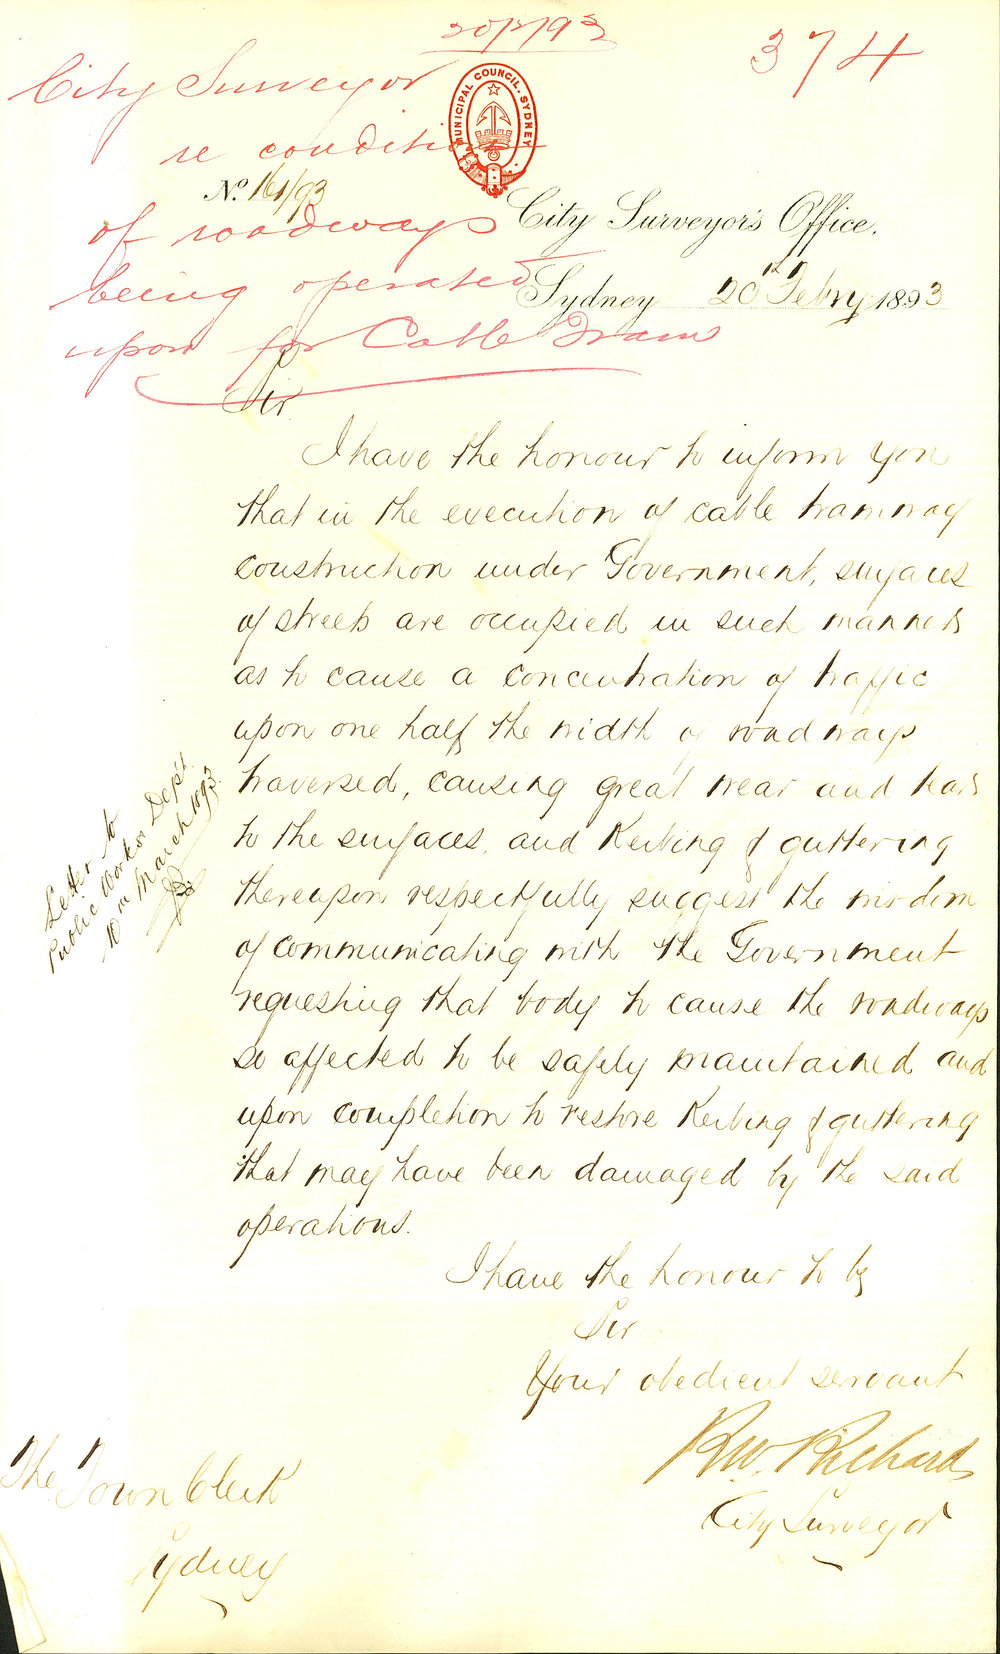 20/2/93
374
City Surveyor
re condition
of roadways
being operated
upon for Cable Tram
MUNICIPAL COUNCIL. SYDNEY
No. 161/93
City Surveyor's Office.
Sydney 20th Febry 1893
Sir
I have the honour to inform you
that in the execution of cable tramway
construction under Government, surfaces
of streets are occupied in such manners
as to cause a concentration of traffic
upon one half the width of roadways
traversed, causing great wear and tear
to the surfaces, and Kerbing & guttering
thereupon respectfully suggest the wisdom
of communicating with the Government
requesting that body to cause the roadways
so affected to be safely maintained and
upon completion to restore Kerbing & guttering
that may have been damaged by the said
operations.
I have the honour to be
Sir
Your obedient servant
R.W. Richards
City Surveyor
The Town Clerk
Sydney
Letter to
Public Works Dept.
10th March 1893.